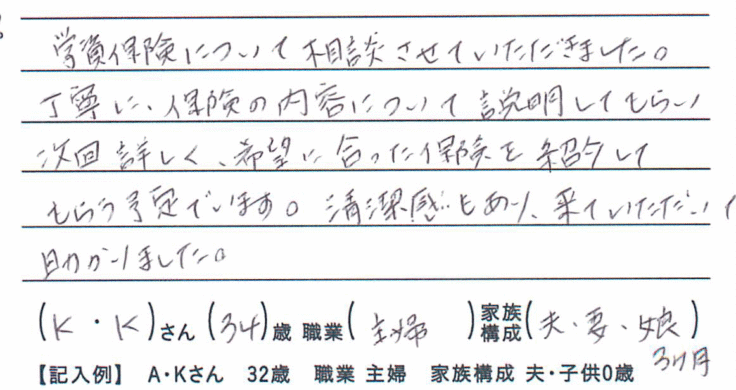 学資保険について相談させていただきました。
丁寧に、保険の内容について説明してもらい
次回詳しく、希望に合った保険を紹介して
もらう予定でいます。清潔感もあり、来ていただいて
助かりました。
(K・K)さん (34)歳 職業(主婦)家族構成(夫・妻・娘)
3ヶ月
【記入例】 A・Kさん 32歳 職業 主婦 家族構成 夫・子供0歳